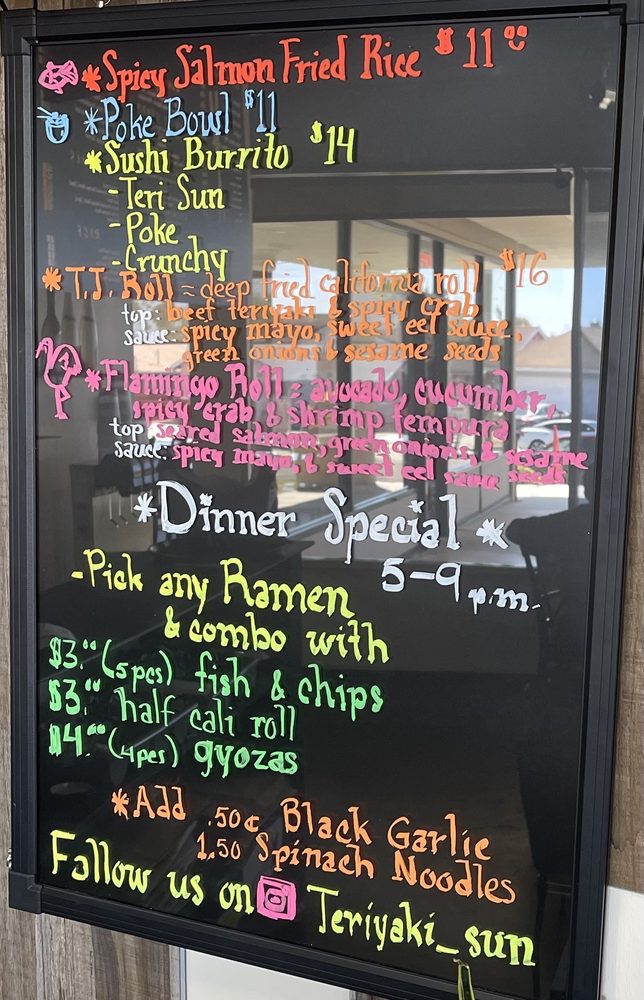 *Spicy Salmon Fried Rice $11.00
*Poke Bowl $11
*Sushi Burrito $14
-Teri Sun
-Poke
-Crunchy
*T.J. Roll = deep fried california roll $16
top: beef teriyaki & spicy crab
sauce: spicy mayo, sweet eel sauce,
green onions & sesame seeds
*Flamingo Roll = avocado, cucumber,
spicy crab & shrimp tempura
top seared salmon, green onions, & sesame
sauce: spicy mayo, & sweet eel sauce seeds
*Dinner Special*
5-9 p.m.
-Pick any Ramen
& combo with
$3.00 (5pcs) fish & chips
$3.00 half cali roll
$4.00 (4pcs) gyozas
*Add .50¢ Black Garlic
1.50 Spinach Noodles
Follow us on Teriyaki_sun